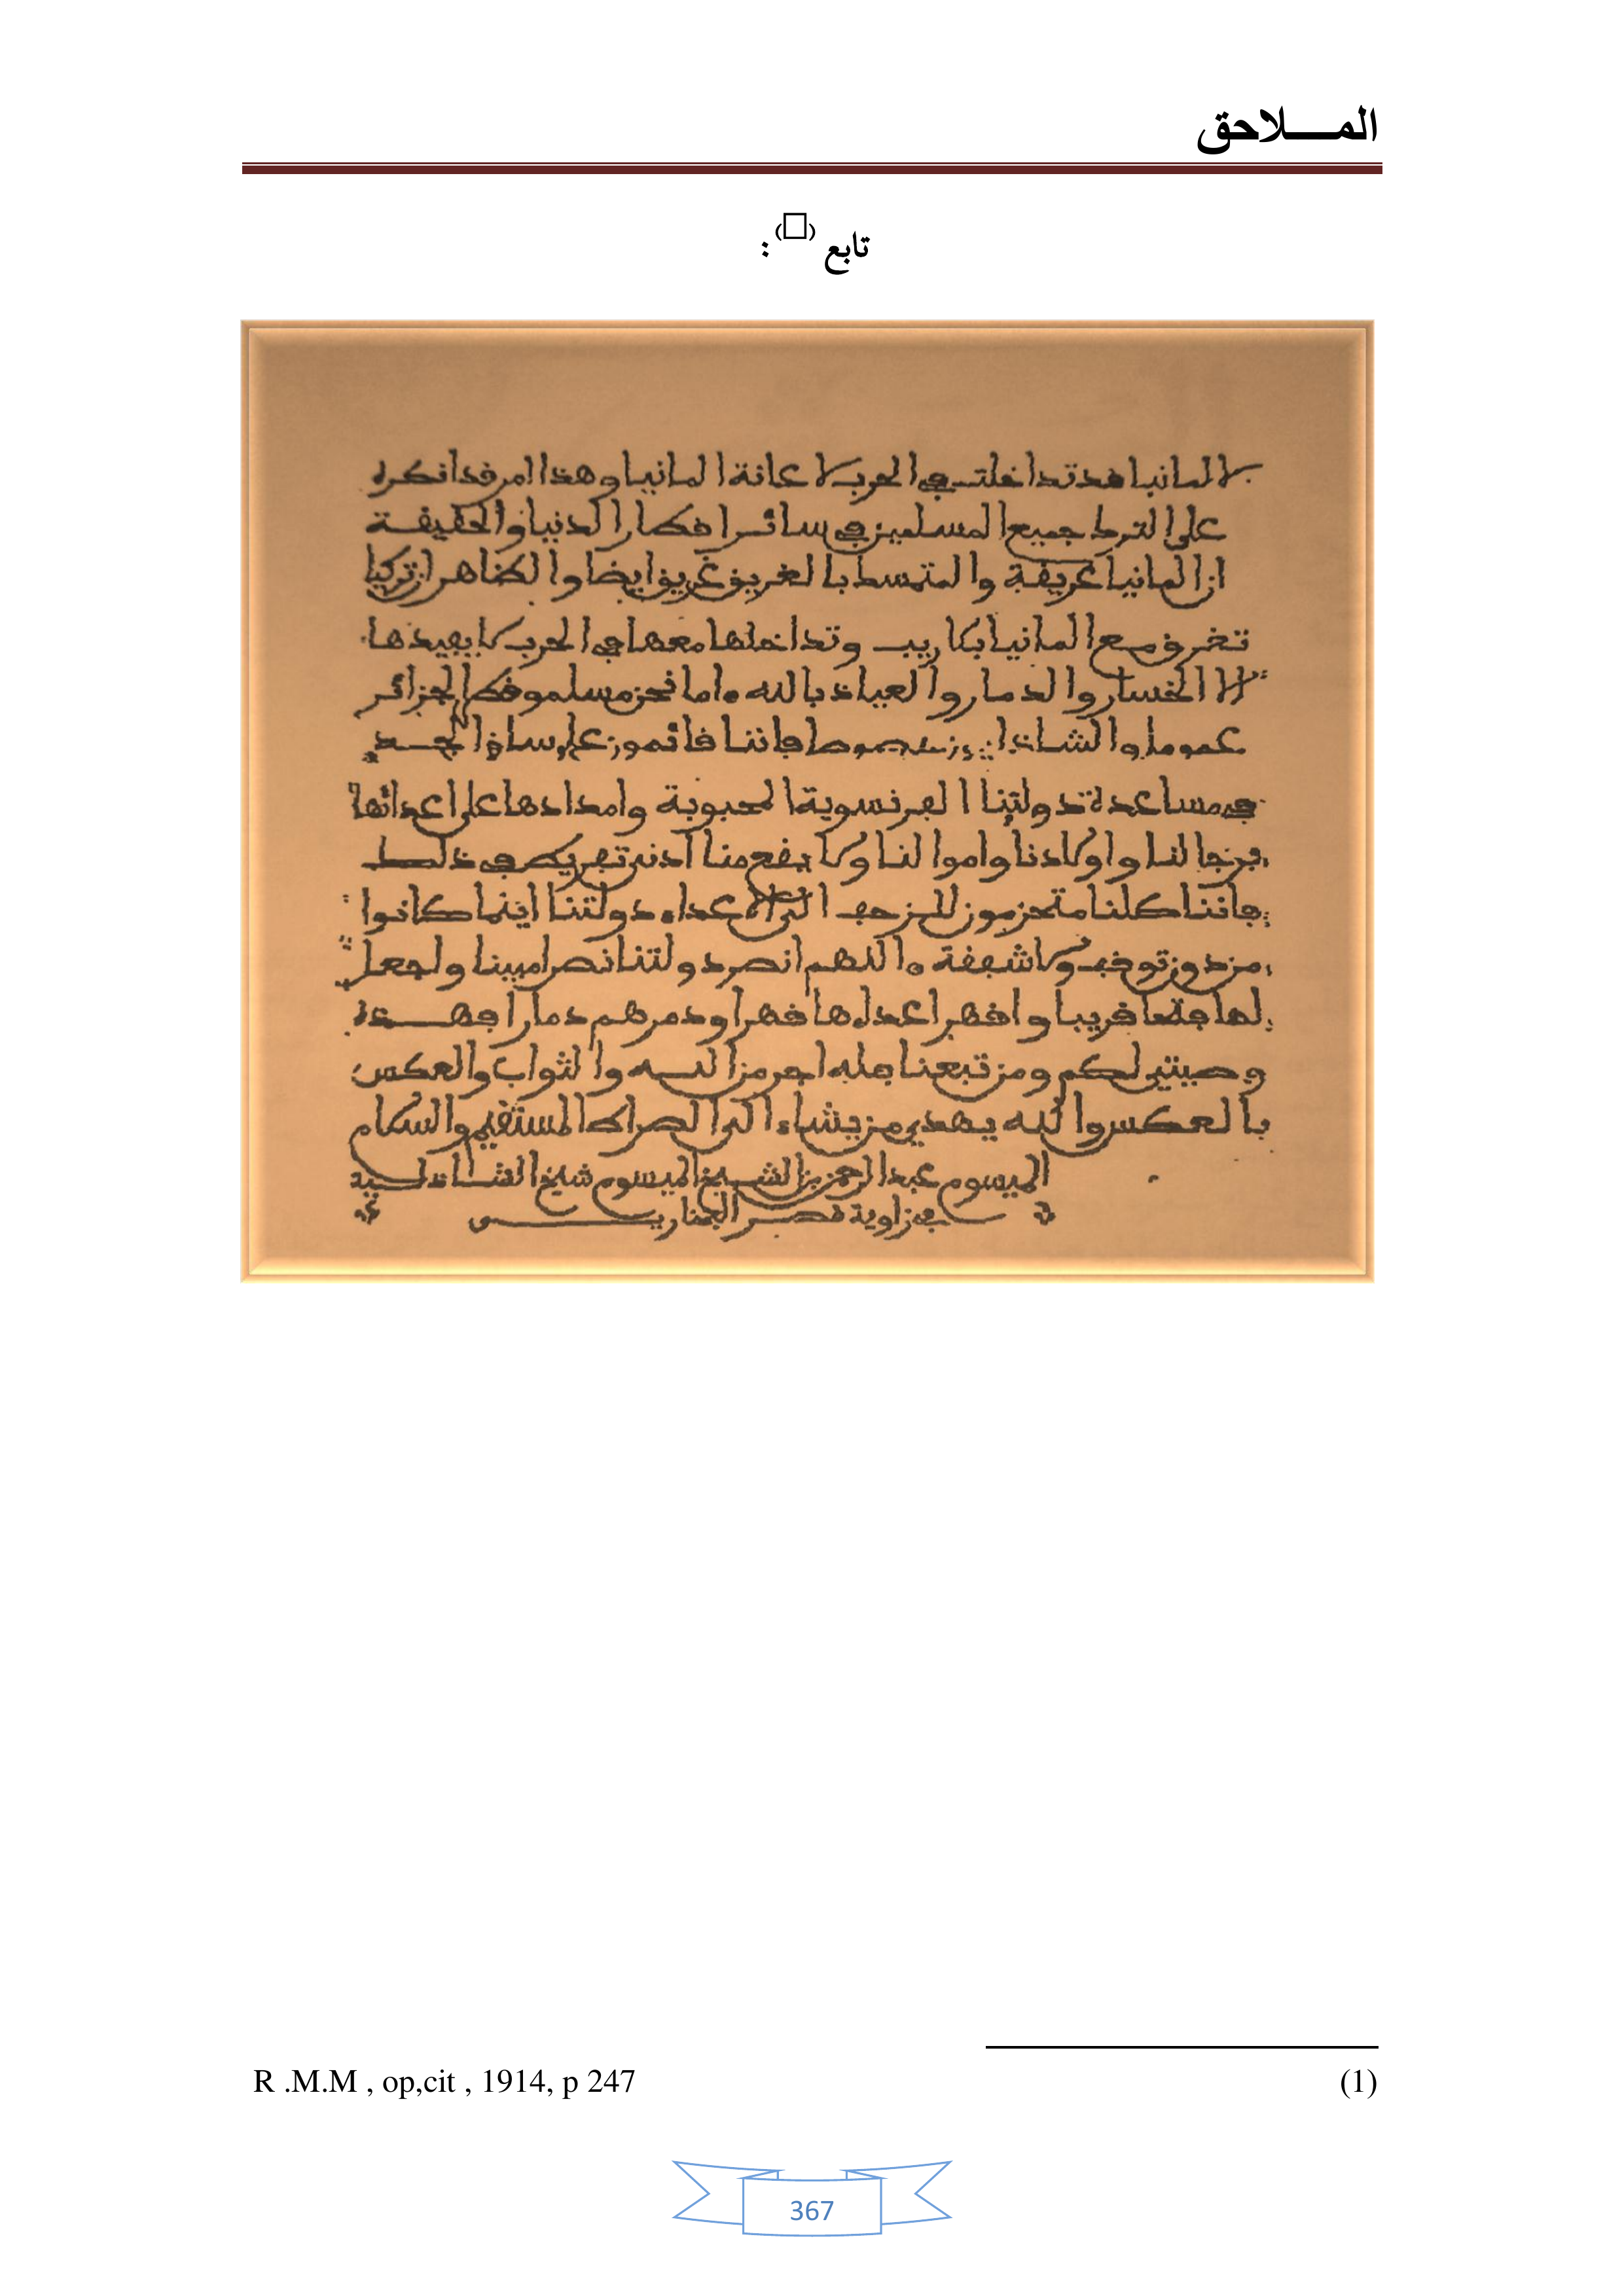 المـــلاحق
تابع (□) :
لالمانيا قد تداخلت في الحرب لاعانة المانيا وهذا امر قد انكره
على الترك جميع المسلمين في سائر اقطار الدنيا والحقيقة
ان المانيا غريقة والمتمسك بالغريق غريق ايضا والظاهر ان تركيا
تغرق مع المانيا بلا ريب وتداخلها معها في الحرب لا يفيدها
الا الخسار والدمار والعياذ بالله ه اما نحن مسلمو قطر الجزائر
عموما والشاذليون خصوصا فاننا قائمون على ساق الجد
في مساعدة دولتنا الفرنسوية المحبوبة وامدادها على اعدائها
برجالنا واولادنا واموالنا ولا يقع منا ادنى تفريط في ذلك
فاننا كلنا متحزمون للزحف الى الاعداء دولتنا اينما كانوا
من دون توقف ولا شفقة ه اللهم انصر دولتنا نصرا مبينا واجعل
لها فتحا قريبا واقهر اعداءها قهرا ودمرهم دمارا فهذه
وصيتي لكم ومن تبعنا فله اجر من الله والثواب والعكس
بالعكس والله يهدي من يشاء الى الصراط المستقيم والسلام
الميسوم عبد الرحمن بن الشيخ الميسوم شيخ الشاذلية
في زاوية قصر البخاري
R .M.M , op,cit , 1914, p 247 (1)
367